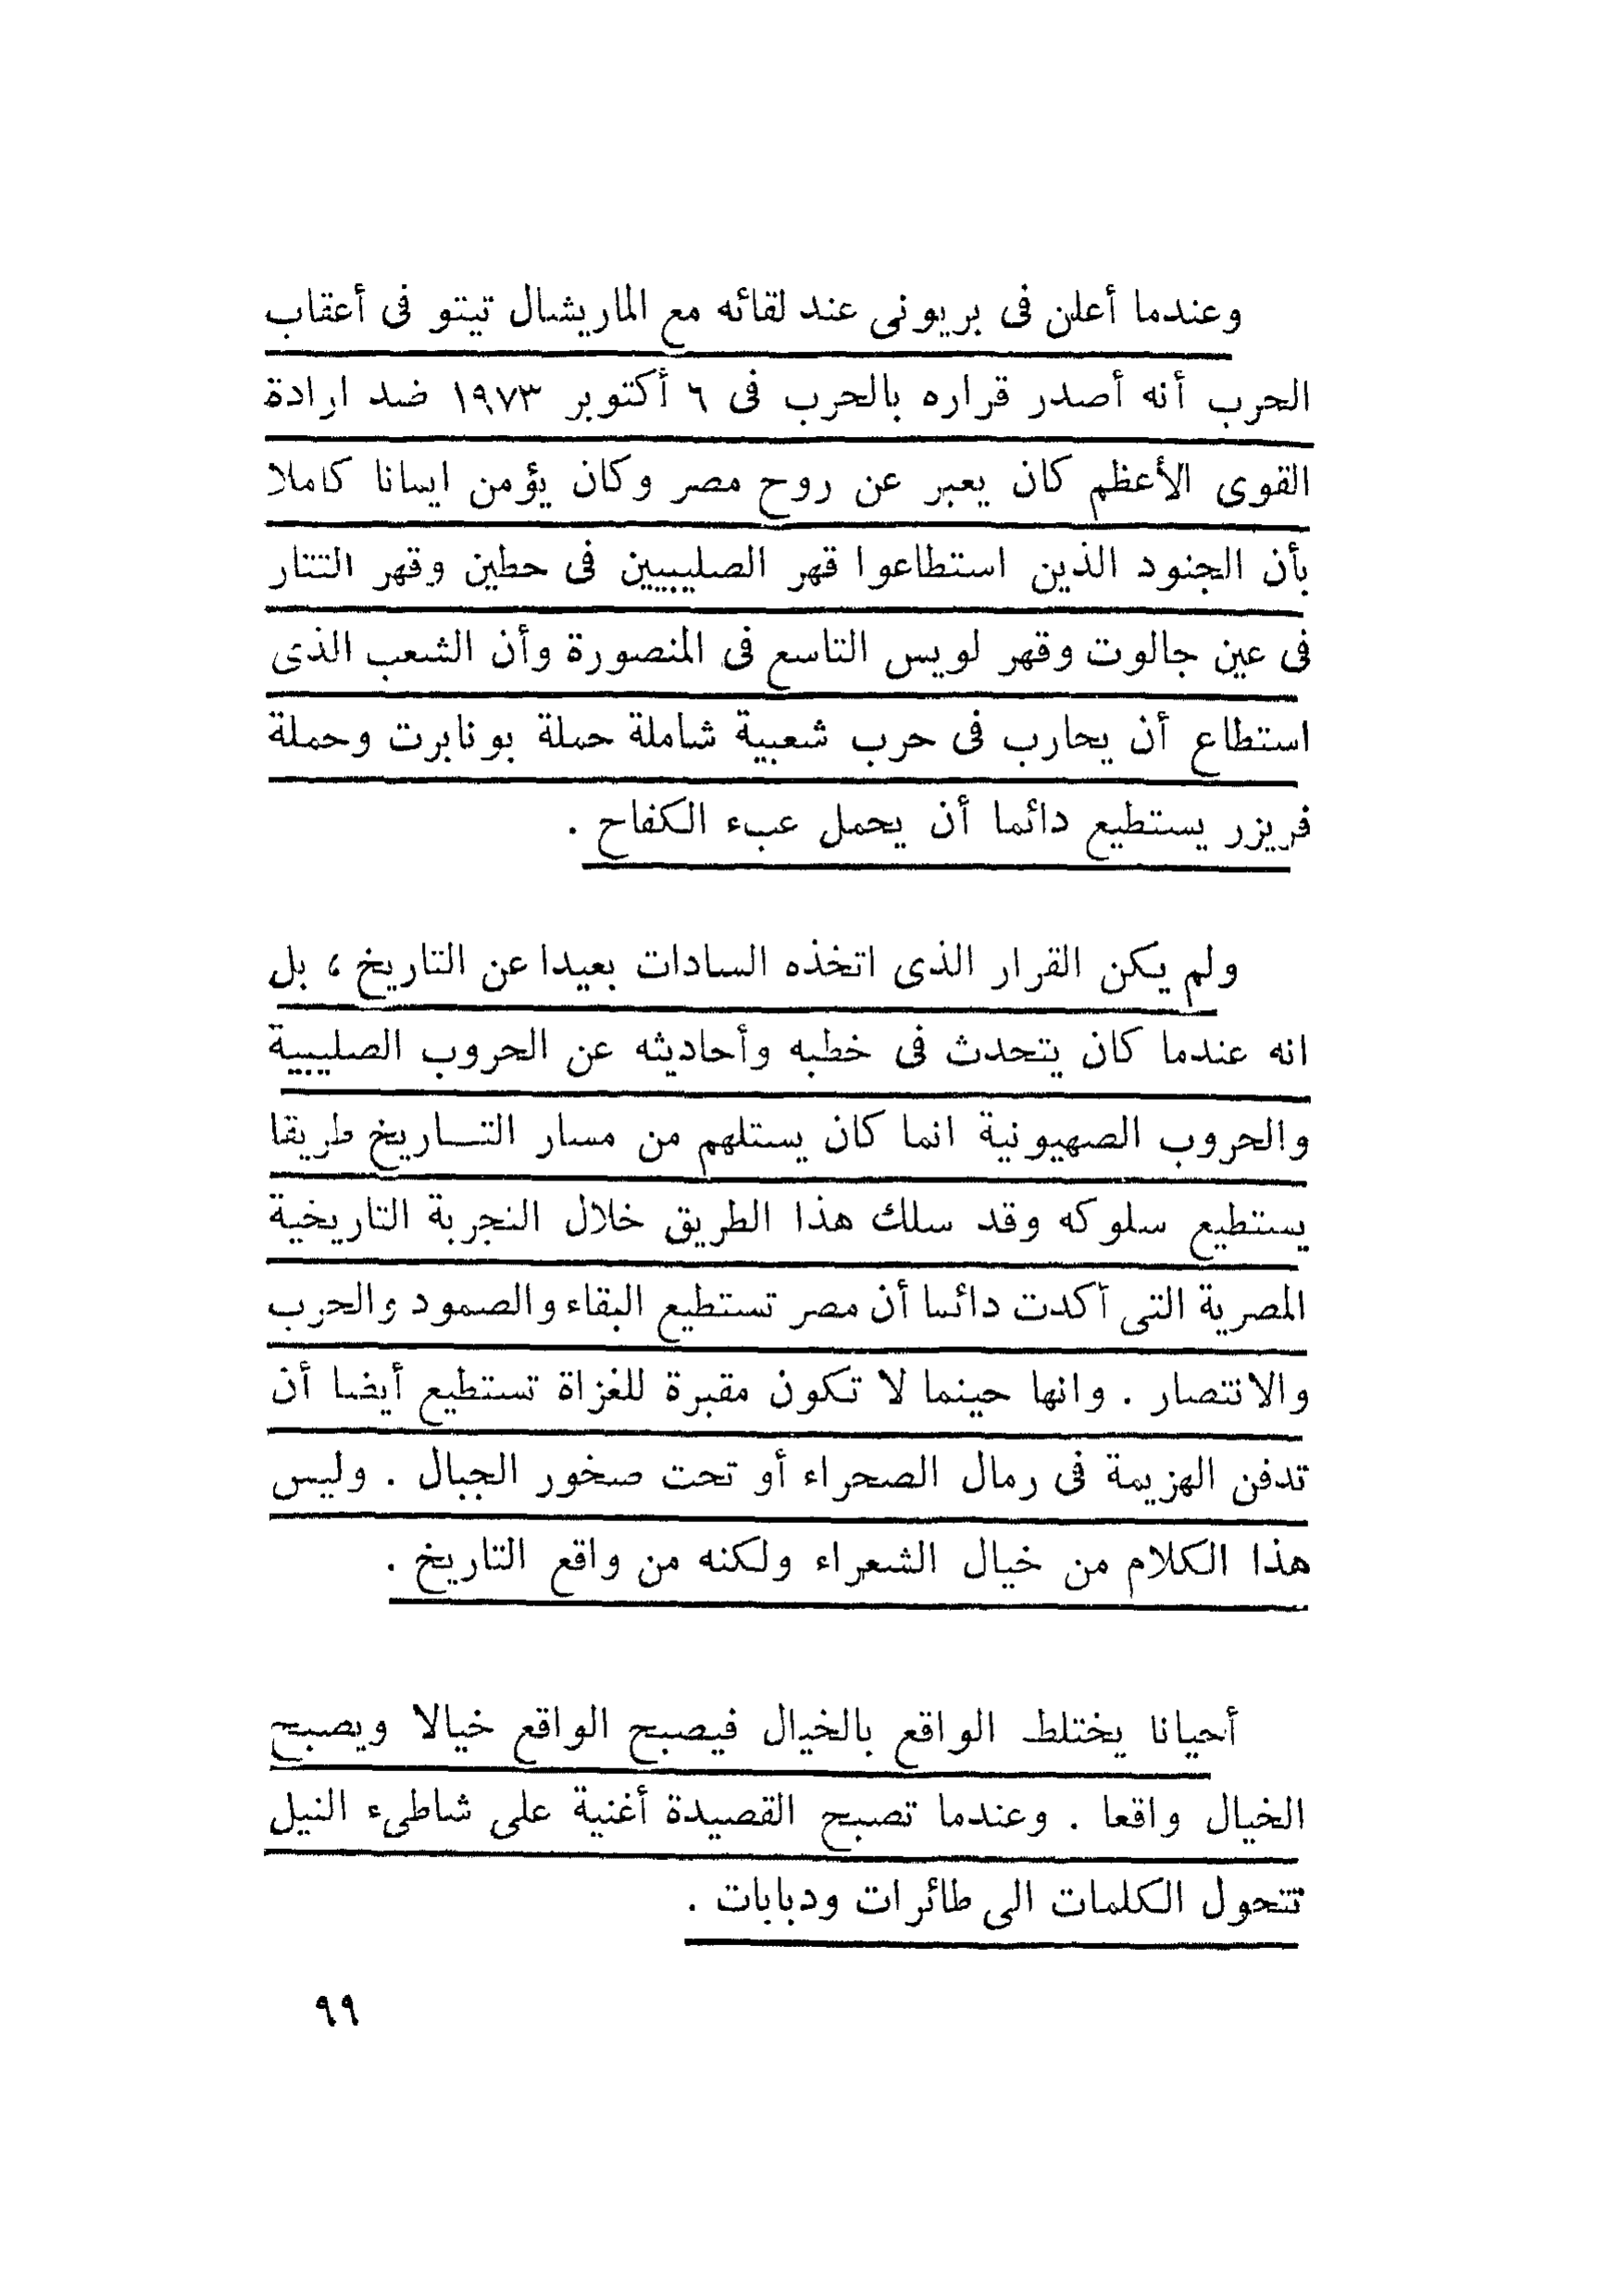 وعندما أعلن فى بريونى عند لقائه مع الماريشال تيتو فى أعقاب
الحرب أنه أصدر قراره بالحرب فى ٦ أكتوبر ١٩٧٣ ضد ارادة
القوى الأعظم كان يعبر عن روح مصر وكان يؤمن ايمانا كاملا
بأن الجنود الذين استطاعوا قهر الصليبيين فى حطين وقهر التتار
فى عين جالوت وقهر لويس التاسع فى المنصورة وأن الشعب الذى
استطاع أن يحارب فى حرب شعبية شاملة حملة بونابرت وحملة
فريزر يستطيع دائما أن يحمل عبء الكفاح .
ولم يكن القرار الذى اتخذه السادات بعيدا عن التاريخ ، بل
انه عندما كان يتحدث فى خطبه وأحاديثه عن الحروب الصليبية
والحروب الصهيونية انما كان يستلهم من مسار التـاريخ طريقا
يستطيع سلوكه وقد سلك هذا الطريق خلال التجربة التاريخية
المصرية التى أكدت دائما أن مصر تستطيع البقاء والصمود والحرب
والانتصار . وانها حينما لا تكون مقبرة للغزاة تستطيع أيضا أن
تدفن الهزيمة فى رمال الصحراء أو تحت صخور الجبال . وليس
هذا الكلام من خيال الشعراء ولكنه من واقع التاريخ .
أحيانا يختلط الواقع بالخيال فيصبح الواقع خيالا ويصبح
الخيال واقعا . وعندما تصبح القصيدة أغنية على شاطىء النيل
تتحول الكلمات الى طائرات ودبابات .
٩٩